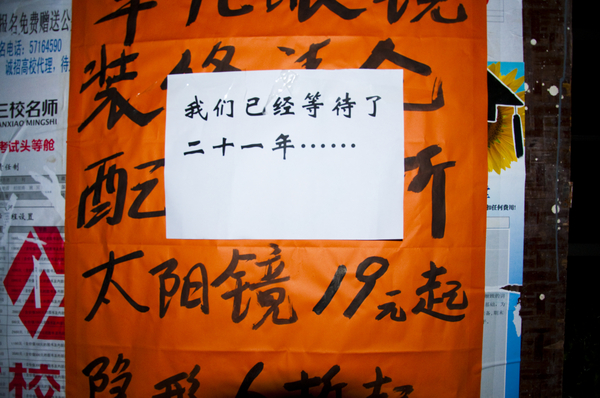 报名免费赠送公
名电话：57164590
诚招高校代理，待
三校名师
ANXIAO MINGSHI
考试头等舱
装修清仓
我们已经等待了
二十一年……
配
折
太阳镜 19元起
隐形
校